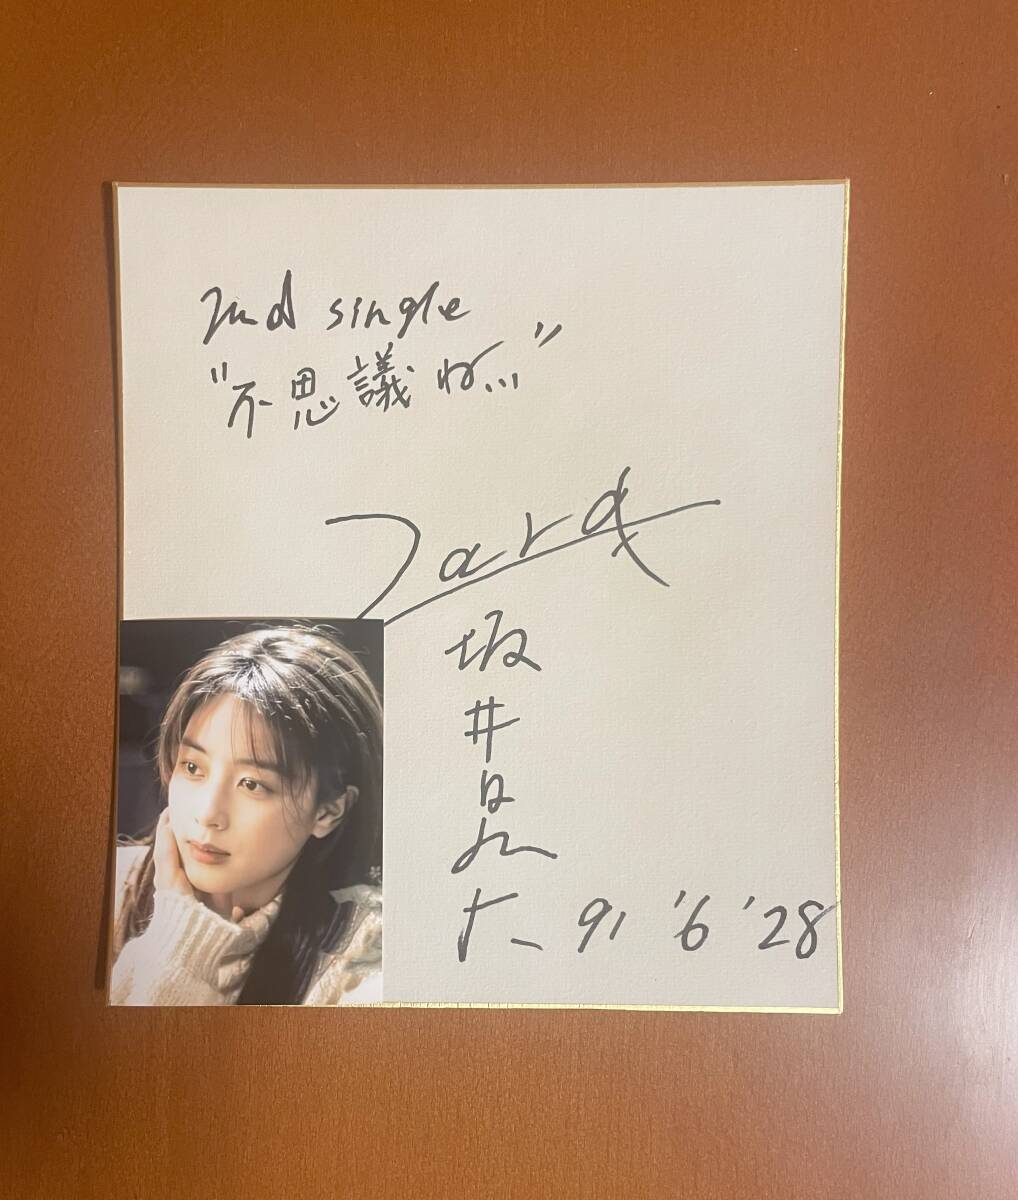 2nd single
"不思議ね…"
Zard
坂井泉水
91 '6 '28